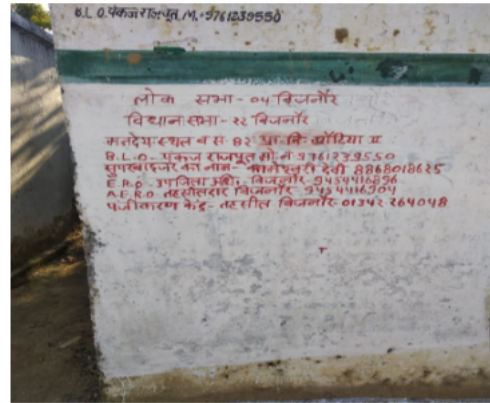 B.L.O. पंकज राजपूत M.-9761239550
लोक सभा-04 बिजनौर
विधान सभा-22 बिजनौर
मतदेय स्थल व स. 82 प्रा. वि. II
B.L.O- पंकज राजपूत मो नं 9761239550
सुपरवाइजर का नाम- देवी 8868018625
E.R.O- उपजिला बिजनौर-9454416896
A.E.R.O तहसीलदार बिजनौर-9454416904
पंजीकरण केंद्र-तहसील बिजनौर-01342 264048